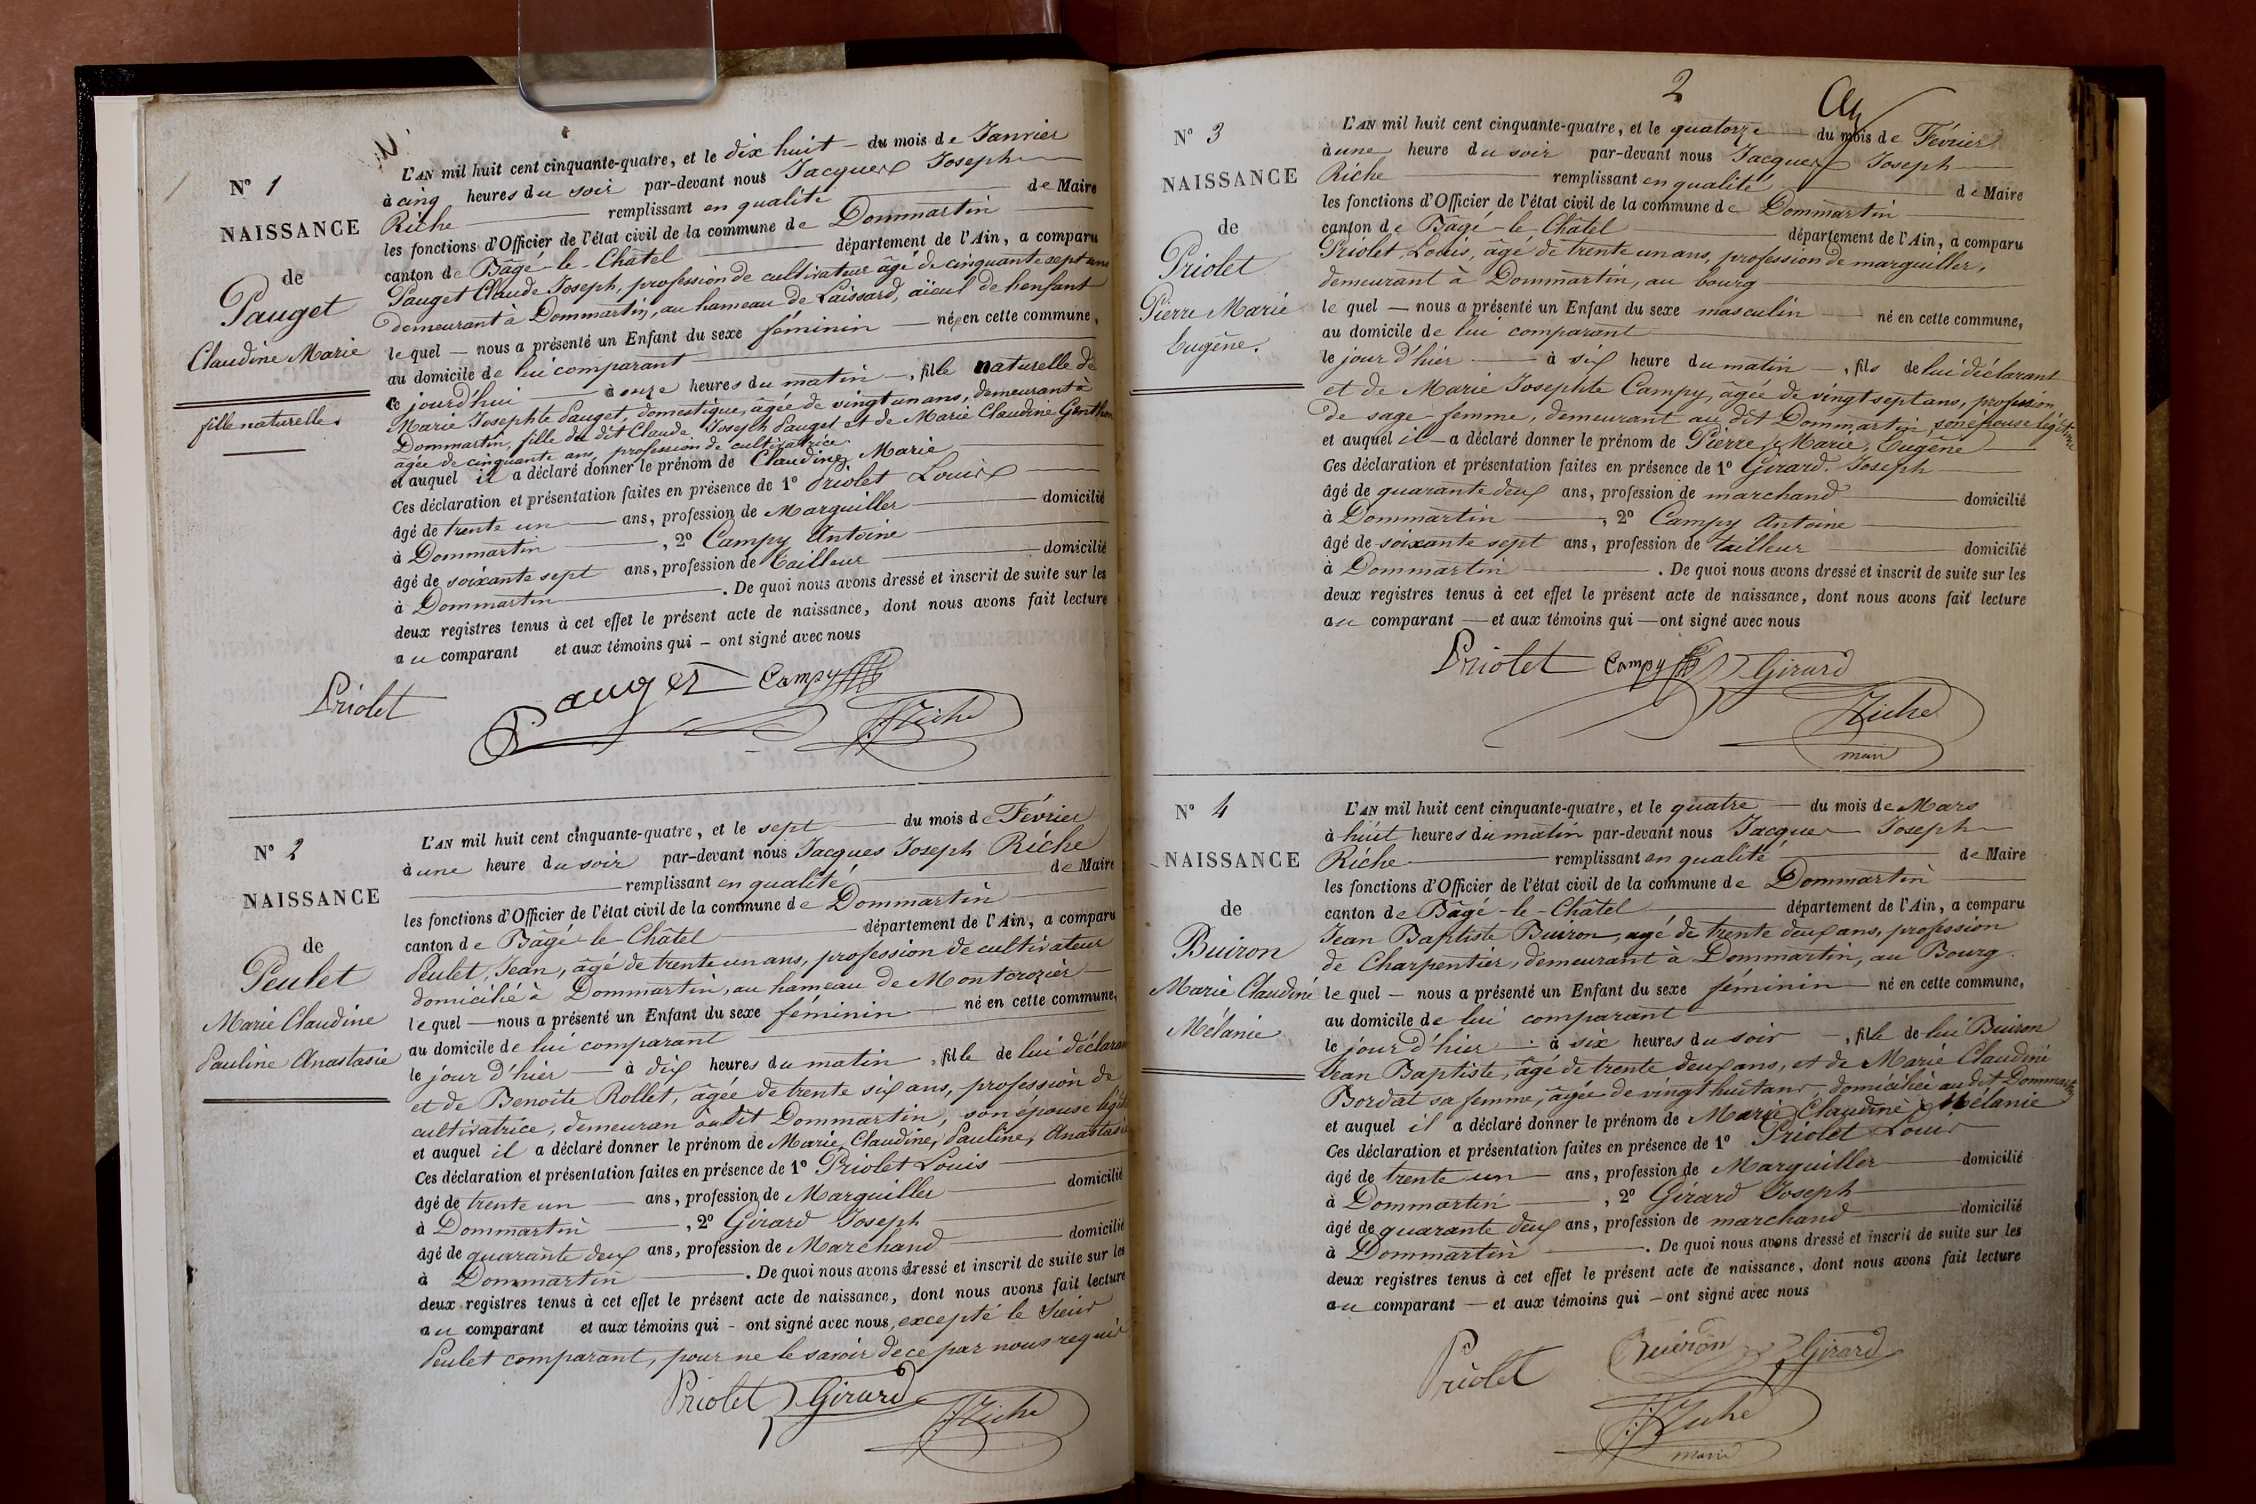 N° 1
NAISSANCE
de
Pauget
Claudine Marie
fille naturelle.
L'AN mil huit cent cinquante-quatre, et le dix huit — du mois de Janvier
à cinq heures du soir par-devant nous Jacques Joseph
Riche remplissant en qualité de Maire
les fonctions d'Officier de l'état civil de la commune de Dommartin
canton de Bâgé-le-Châtel département de l'Ain, a comparu
Pauget Claude Joseph, profession de cultivateur âgé de cinquante sept ans
demeurant à Dommartin, au hameau de Laissard, aïeul de l'enfant
le quel — nous a présenté un Enfant du sexe féminin — né en cette commune,
au domicile de lui comparant
ce jourd'hui à onze heures du matin —, fille naturelle de
Marie Josephte Pauget, domestique, âgée de vingt un ans, demeurant à
Dommartin, fille du dit Claude Joseph Pauget et de Marie Claudine Genthon
âgée de cinquante ans, profession de cultivatrice.
et auquel il a déclaré donner le prénom de Claudine, Marie
Ces déclaration et présentation faites en présence de 1° Priolet Louis
âgé de trente un — ans, profession de Marguiller domicilié
à Dommartin , 2° Campy Antoine
âgé de soixante sept ans, profession de tailleur domicilié
à Dommartin . De quoi nous avons dressé et inscrit de suite sur les
deux registres tenus à cet effet le présent acte de naissance, dont nous avons fait lecture
au comparant et aux témoins qui — ont signé avec nous
Priolet Pauget Campy
JJRiche
N° 2
NAISSANCE
de
Peulet
Marie Claudine
Pauline Anastasie
L'AN mil huit cent cinquante-quatre, et le sept du mois de Février
à une heure du soir par-devant nous Jacques Joseph Riche
remplissant en qualité de Maire
les fonctions d'Officier de l'état civil de la commune de Dommartin
canton de Bâgé-le-Châtel département de l'Ain, a comparu
Peulet, Jean, âgé de trente un ans, profession de cultivateur
domicilié à Dommartin, au hameau de Montcrozier
le quel — nous a présenté un Enfant du sexe féminin — né en cette commune,
au domicile de lui comparant
le jour d'hier — à dix heures du matin , fille de lui déclarant
et de Benoite Rollet, âgée de trente six ans, profession de
cultivatrice, demeuran audit Dommartin, son épouse légit
et auquel il a déclaré donner le prénom de Marie, Claudine, Pauline, Anastasie
Ces déclaration et présentation faites en présence de 1° Priolet Louis
âgé de trente un — ans, profession de Marguiller domicilié
à Dommartin , 2° Girard Joseph
âgé de quarante deux ans, profession de Marchand domicilié
à Dommartin . De quoi nous avons dressé et inscrit de suite sur les
deux registres tenus à cet effet le présent acte de naissance, dont nous avons fait lecture
au comparant et aux témoins qui - ont signé avec nous, excepté le Sieur
Peulet comparant, pour ne le savoir de ce par nous requis
Priolet Girard
JJRiche
2
N° 3
NAISSANCE
de
Priolet
Pierre Marie
Eugène.
L'AN mil huit cent cinquante-quatre, et le quatorze — du mois de Février
à une heure du soir par-devant nous Jacques Joseph
Riche remplissant en qualité de Maire
les fonctions d'Officier de l'état civil de la commune de Dommartin
canton de Bâgé-le-Châtel département de l'Ain, a comparu
Priolet, Louis, âgé de trente un ans, profession de marguiller,
demeurant à Dommartin, au bourg
le quel — nous a présenté un Enfant du sexe masculin né en cette commune,
au domicile de lui comparant
le jour d'hier — à six heure du matin —, fils de lui déclarant
et de Marie Josephte Campy, âgée de vingt sept ans, profession
de sage-femme, demeurant au dit Dommartin, son épouse légitime
et auquel il — a déclaré donner le prénom de Pierre, Marie, Eugène
Ces déclaration et présentation faites en présence de 1° Girard. Joseph
âgé de quarante deux ans, profession de marchand domicilié
à Dommartin , 2° Campy Antoine
âgé de soixante sept ans, profession de tailleur domicilié
à Dommartin . De quoi nous avons dressé et inscrit de suite sur les
deux registres tenus à cet effet le présent acte de naissance, dont nous avons fait lecture
au comparant — et aux témoins qui — ont signé avec nous
Priolet Campy Girard
JJRiche
maire
N° 4
NAISSANCE
de
Buiron
Marie Claudine
Mélanie
L'AN mil huit cent cinquante-quatre, et le quatre — du mois de Mars
à huit heures du matin par-devant nous Jacques Joseph
Riche remplissant en qualité de Maire
les fonctions d'Officier de l'état civil de la commune de Dommartin
canton de Bâgé-le-Châtel département de l'Ain, a comparu
Jean Baptiste Buiron, agé de trente deux ans, profession
de Charpentier, demeurant à Dommartin, au Bourg.
le quel — nous a présenté un Enfant du sexe féminin — né en cette commune,
au domicile de lui comparant
le jour d'hier — à six heures du soir , fille de lui Buiron
Jean Baptiste, âgé de trente deux ans, et de Marie Claudine
Bordat sa femme, âgée de vingt huit ans, domiciliée au dit Dommartin
et auquel il a déclaré donner le prénom de Marie, Claudine, Mélanie
Ces déclaration et présentation faites en présence de 1° Priolet Louis
âgé de trente un — ans, profession de Marguiller domicilié
à Dommartin , 2° Girard Joseph
âgé de quarante deux ans, profession de marchand domicilié
à Dommartin . De quoi nous avons dressé et inscrit de suite sur les
deux registres tenus à cet effet le présent acte de naissance, dont nous avons fait lecture
au comparant — et aux témoins qui — ont signé avec nous
Priolet Buiron Girard
JJRiche
maire